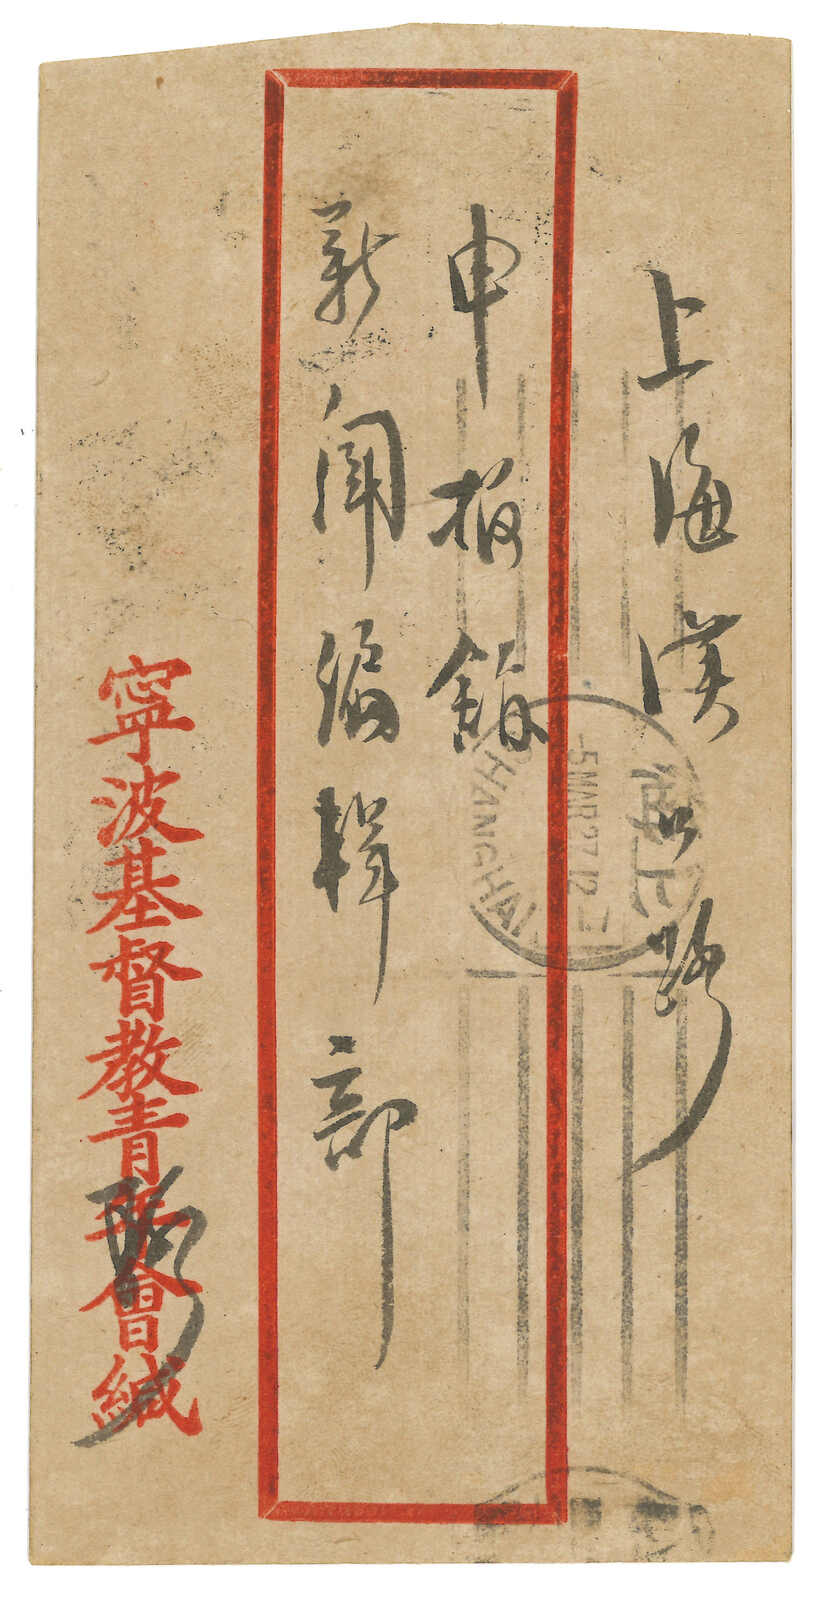 上海漢口路
申報館
新聞編輯部
寧波基督教青年會緘
上海
SHANGHAI
-5 MAR 27 12